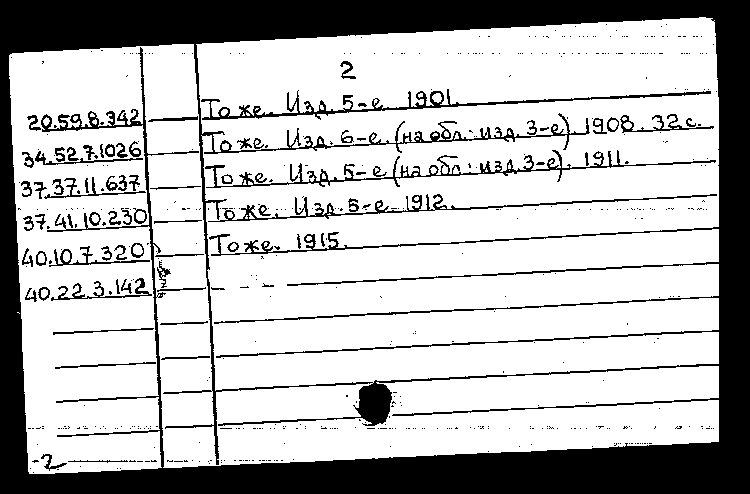 2
20.59.8.342 То же. Изд. 5-е 1901.
34.52.7.1026 То же. Изд. 6-е. (на обл.: изд. 3-е). 1908. 32 с.
37.37.11.637 То же. Изд. 5-е (на обл.: изд. 3-е). 1911.
37.41.10.230 То же. Изд. 5-е 1912.
40.10.7.320 То же. 1915.
40.22.3.142
-2